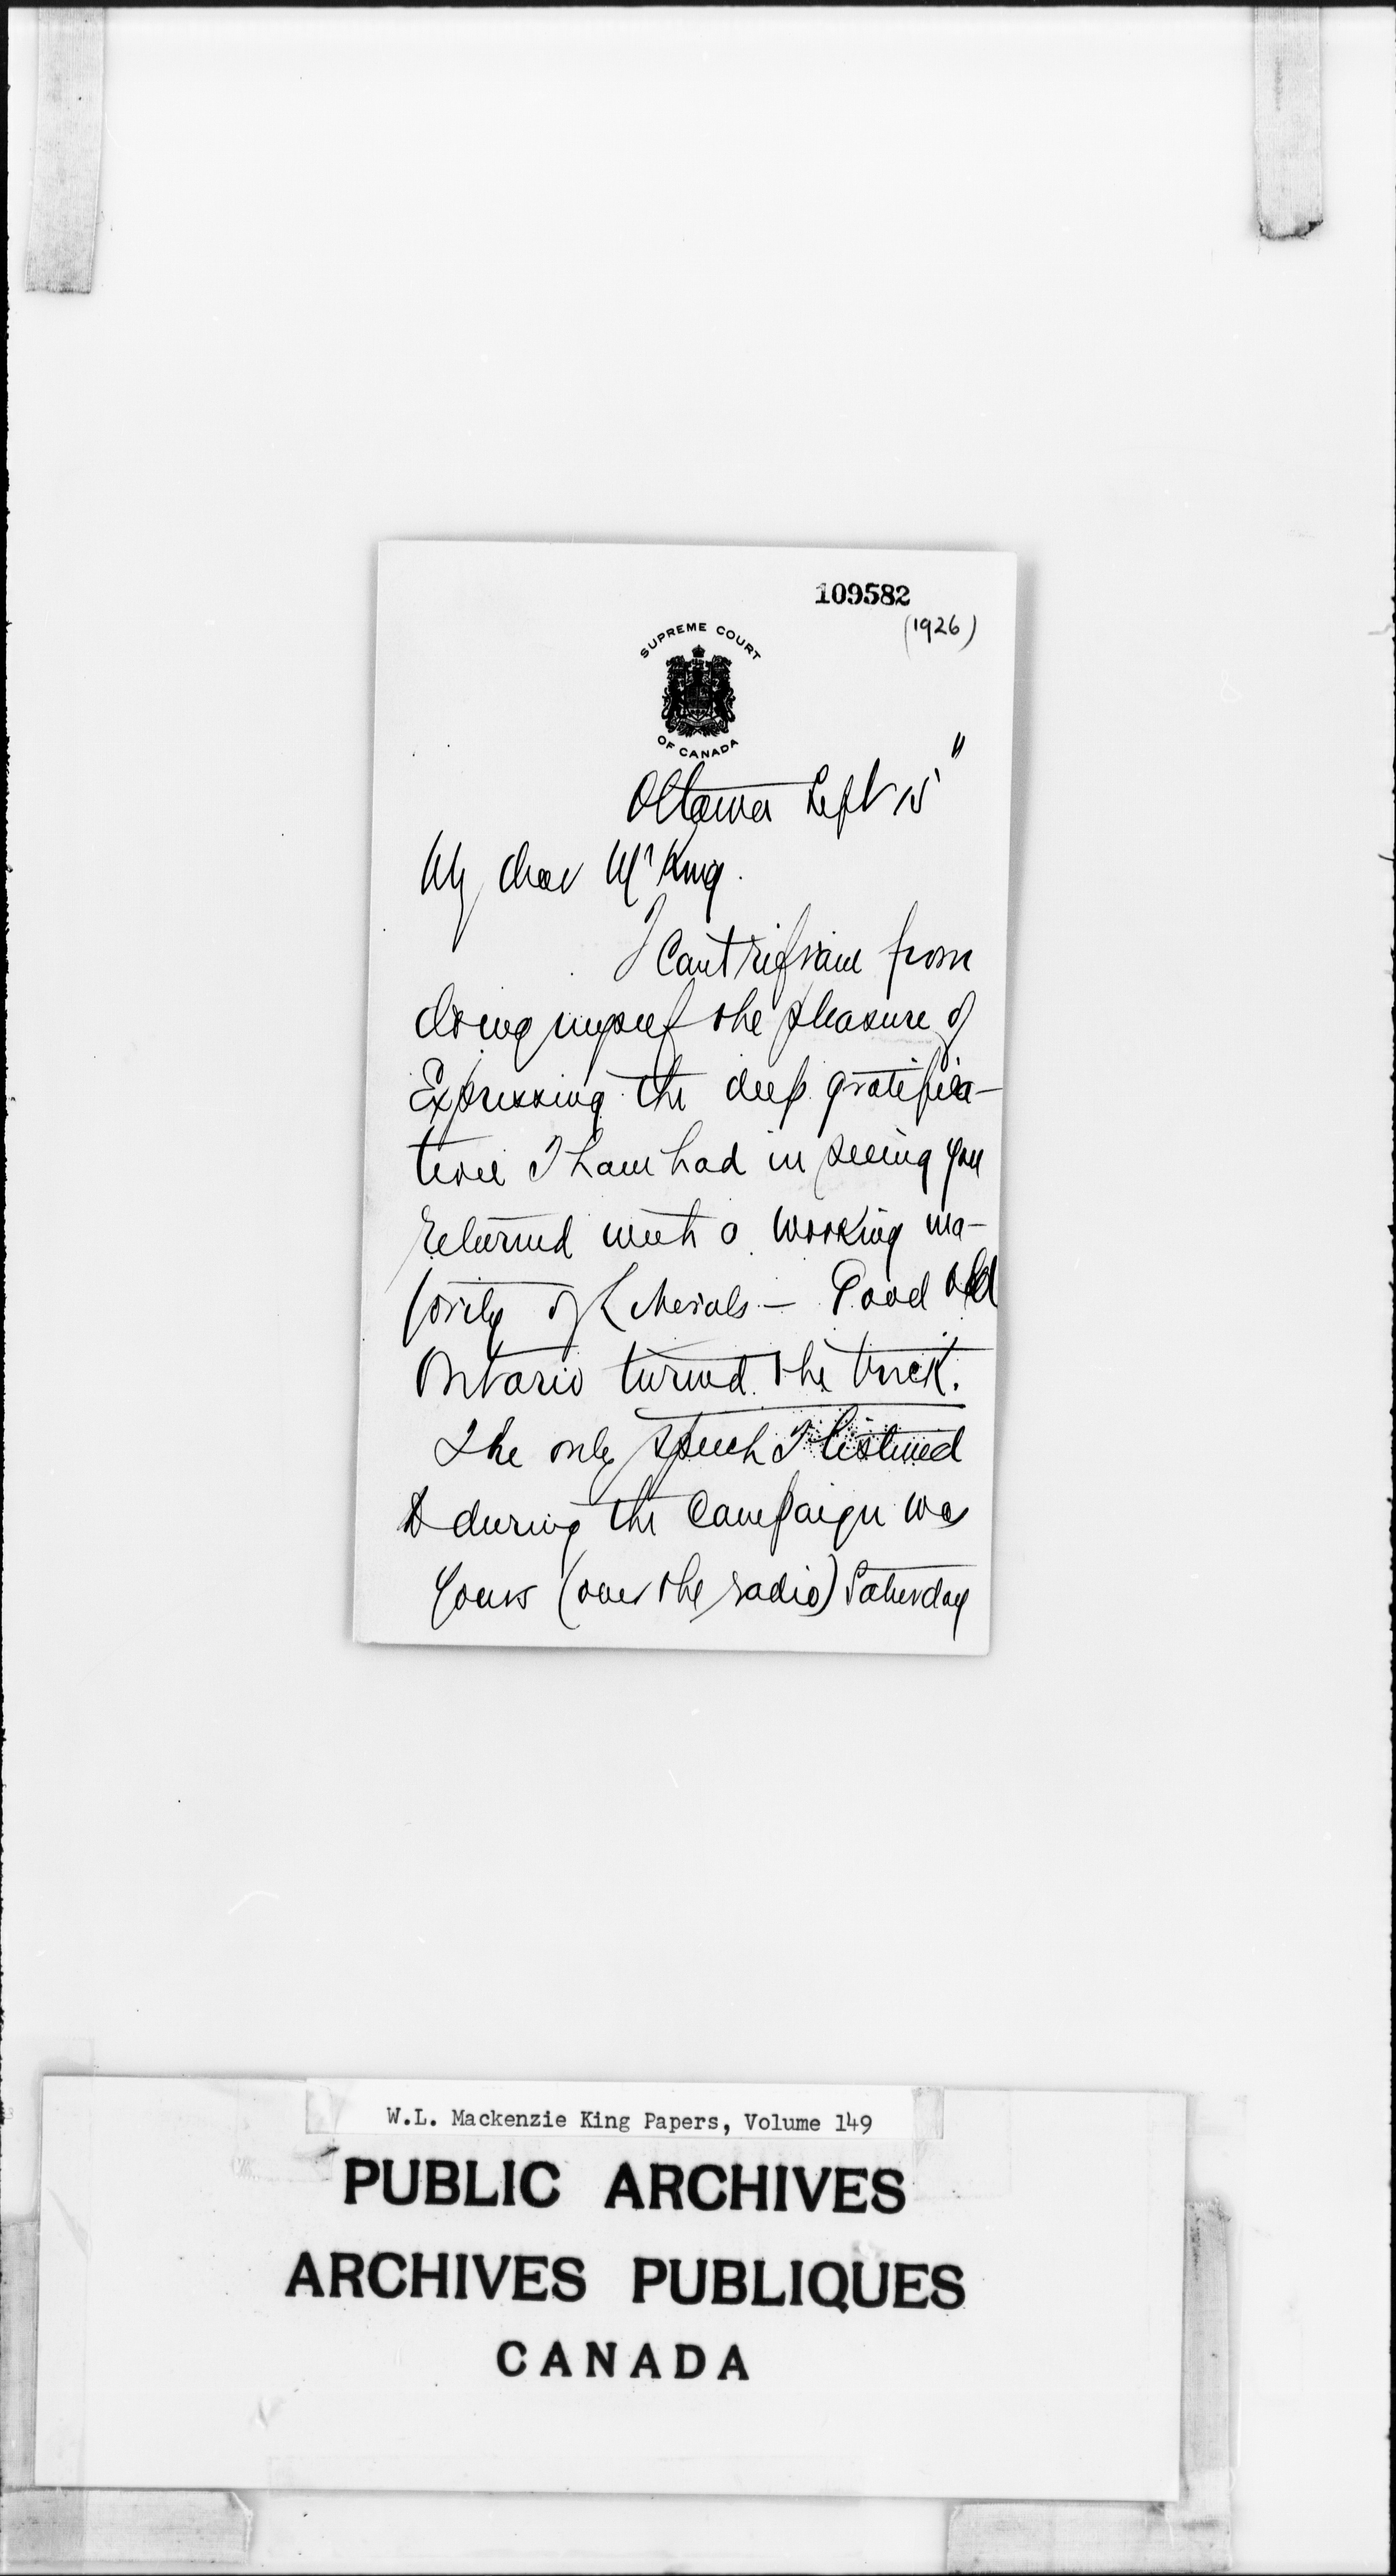 109582
(1926)
SUPREME COURT
OF CANADA
Ottawa Sept 15"
My dear Mr King.
I Cant refrain from
doing myself the pleasure of
Expressing the deep gratifica-
tion I have had in seeing you
returned with a working ma-
jority of Liberals - Good old
Ontario turned the trick.
The only speech I listened
to during the Campaign was
yours (over the radio) Saturday
W.L. Mackenzie King Papers, Volume 149
PUBLIC ARCHIVES
ARCHIVES PUBLIQUES
CANADA